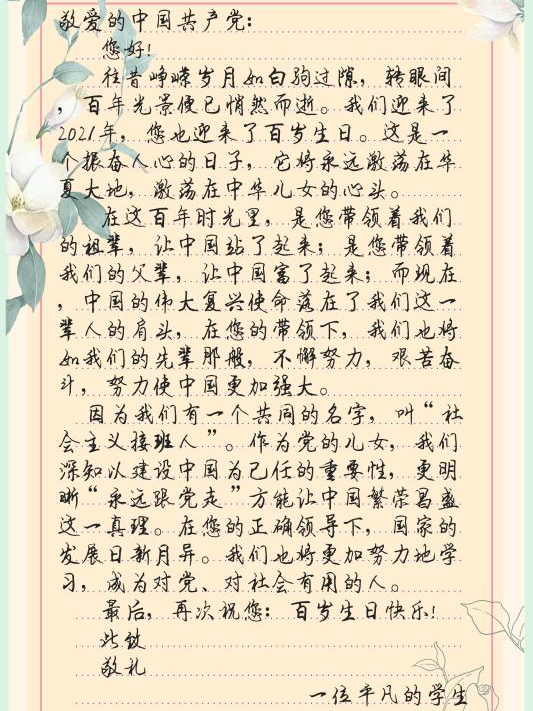 敬爱的中国共产党：
您好！
往昔峥嵘岁月如白驹过隙，转眼间
，百年光景便已悄然而逝。我们迎来了
2021年，您也迎来了百岁生日。这是一
个振奋人心的日子，它将永远激荡在华
夏大地，激荡在中华儿女的心头。
在这百年时光里，是您带领着我们
的祖辈，让中国站了起来；是您带领着
我们的父辈，让中国富了起来；而现在
，中国的伟大复兴使命落在了我们这一
辈人的肩头，在您的带领下，我们也将
如我们的先辈那般，不懈努力，艰苦奋
斗，努力使中国更加强大。
因为我们有一个共同的名字，叫“社
会主义接班人”。作为党的儿女，我们
深知以建设中国为己任的重要性，更明
晰“永远跟党走”方能让中国繁荣昌盛
这一真理。在您的正确领导下，国家的
发展日新月异。我们也将更加努力地学
习，成为对党、对社会有用的人。
最后，再次祝您：百岁生日快乐！
此致
敬礼
一位平凡的学生